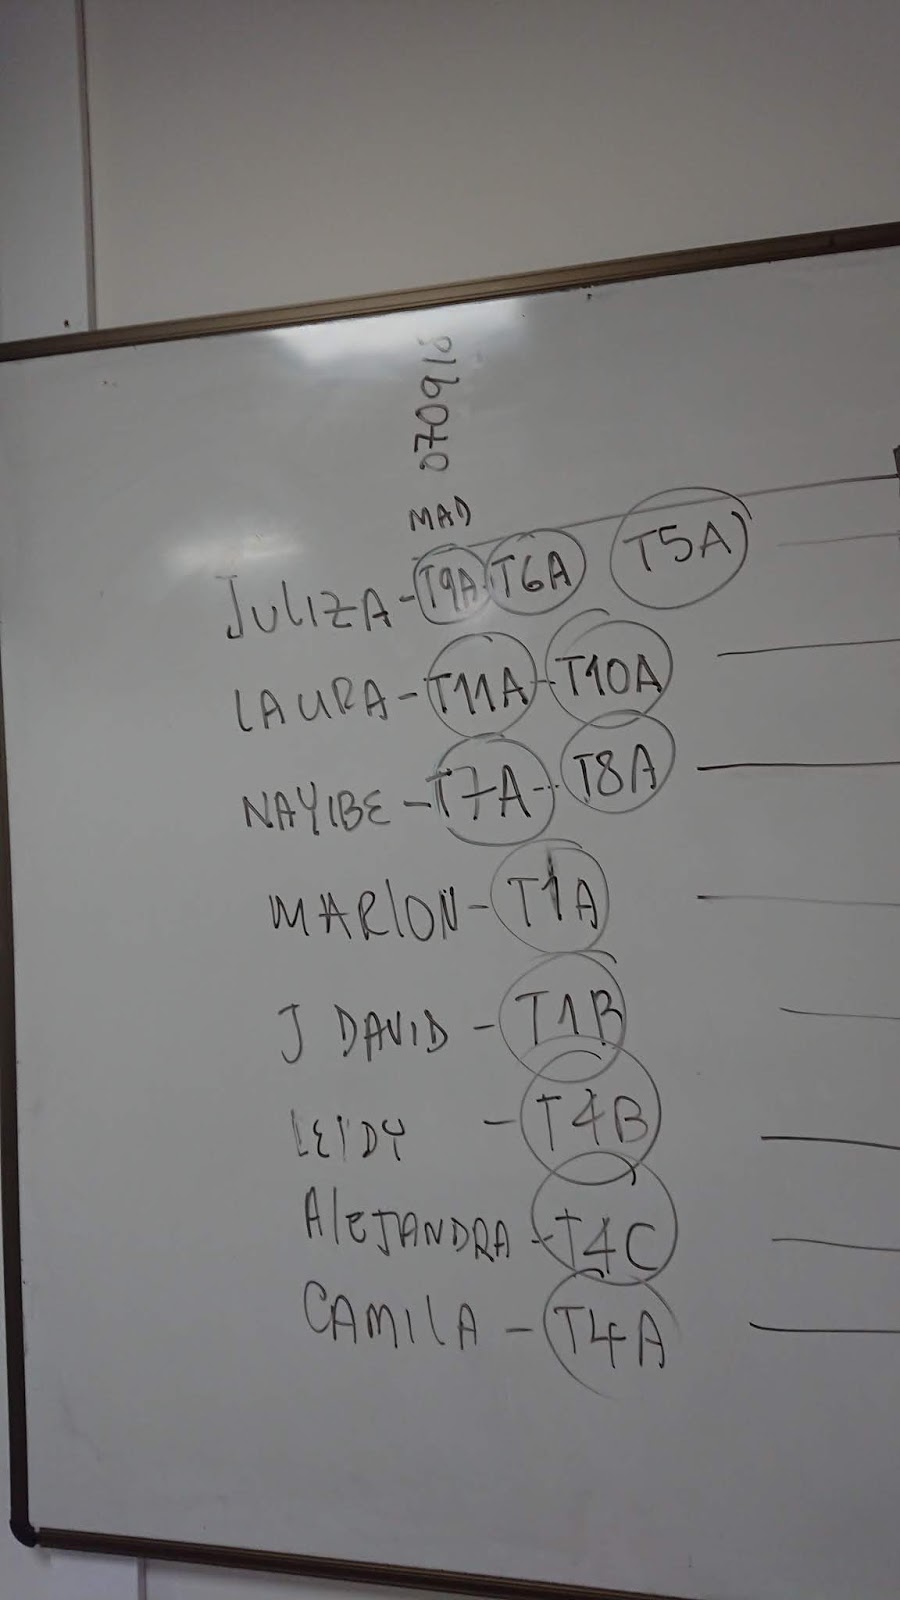 070918
MAD
JULIZA - T9A - T6A T5A
LAURA - T11A - T10A
NAYIBE - T7A - T8A
MARLON - T1A
J DAVID - T1B
LEIDY - T4B
AlEJANDRA - T4C
CAMILA - T4A